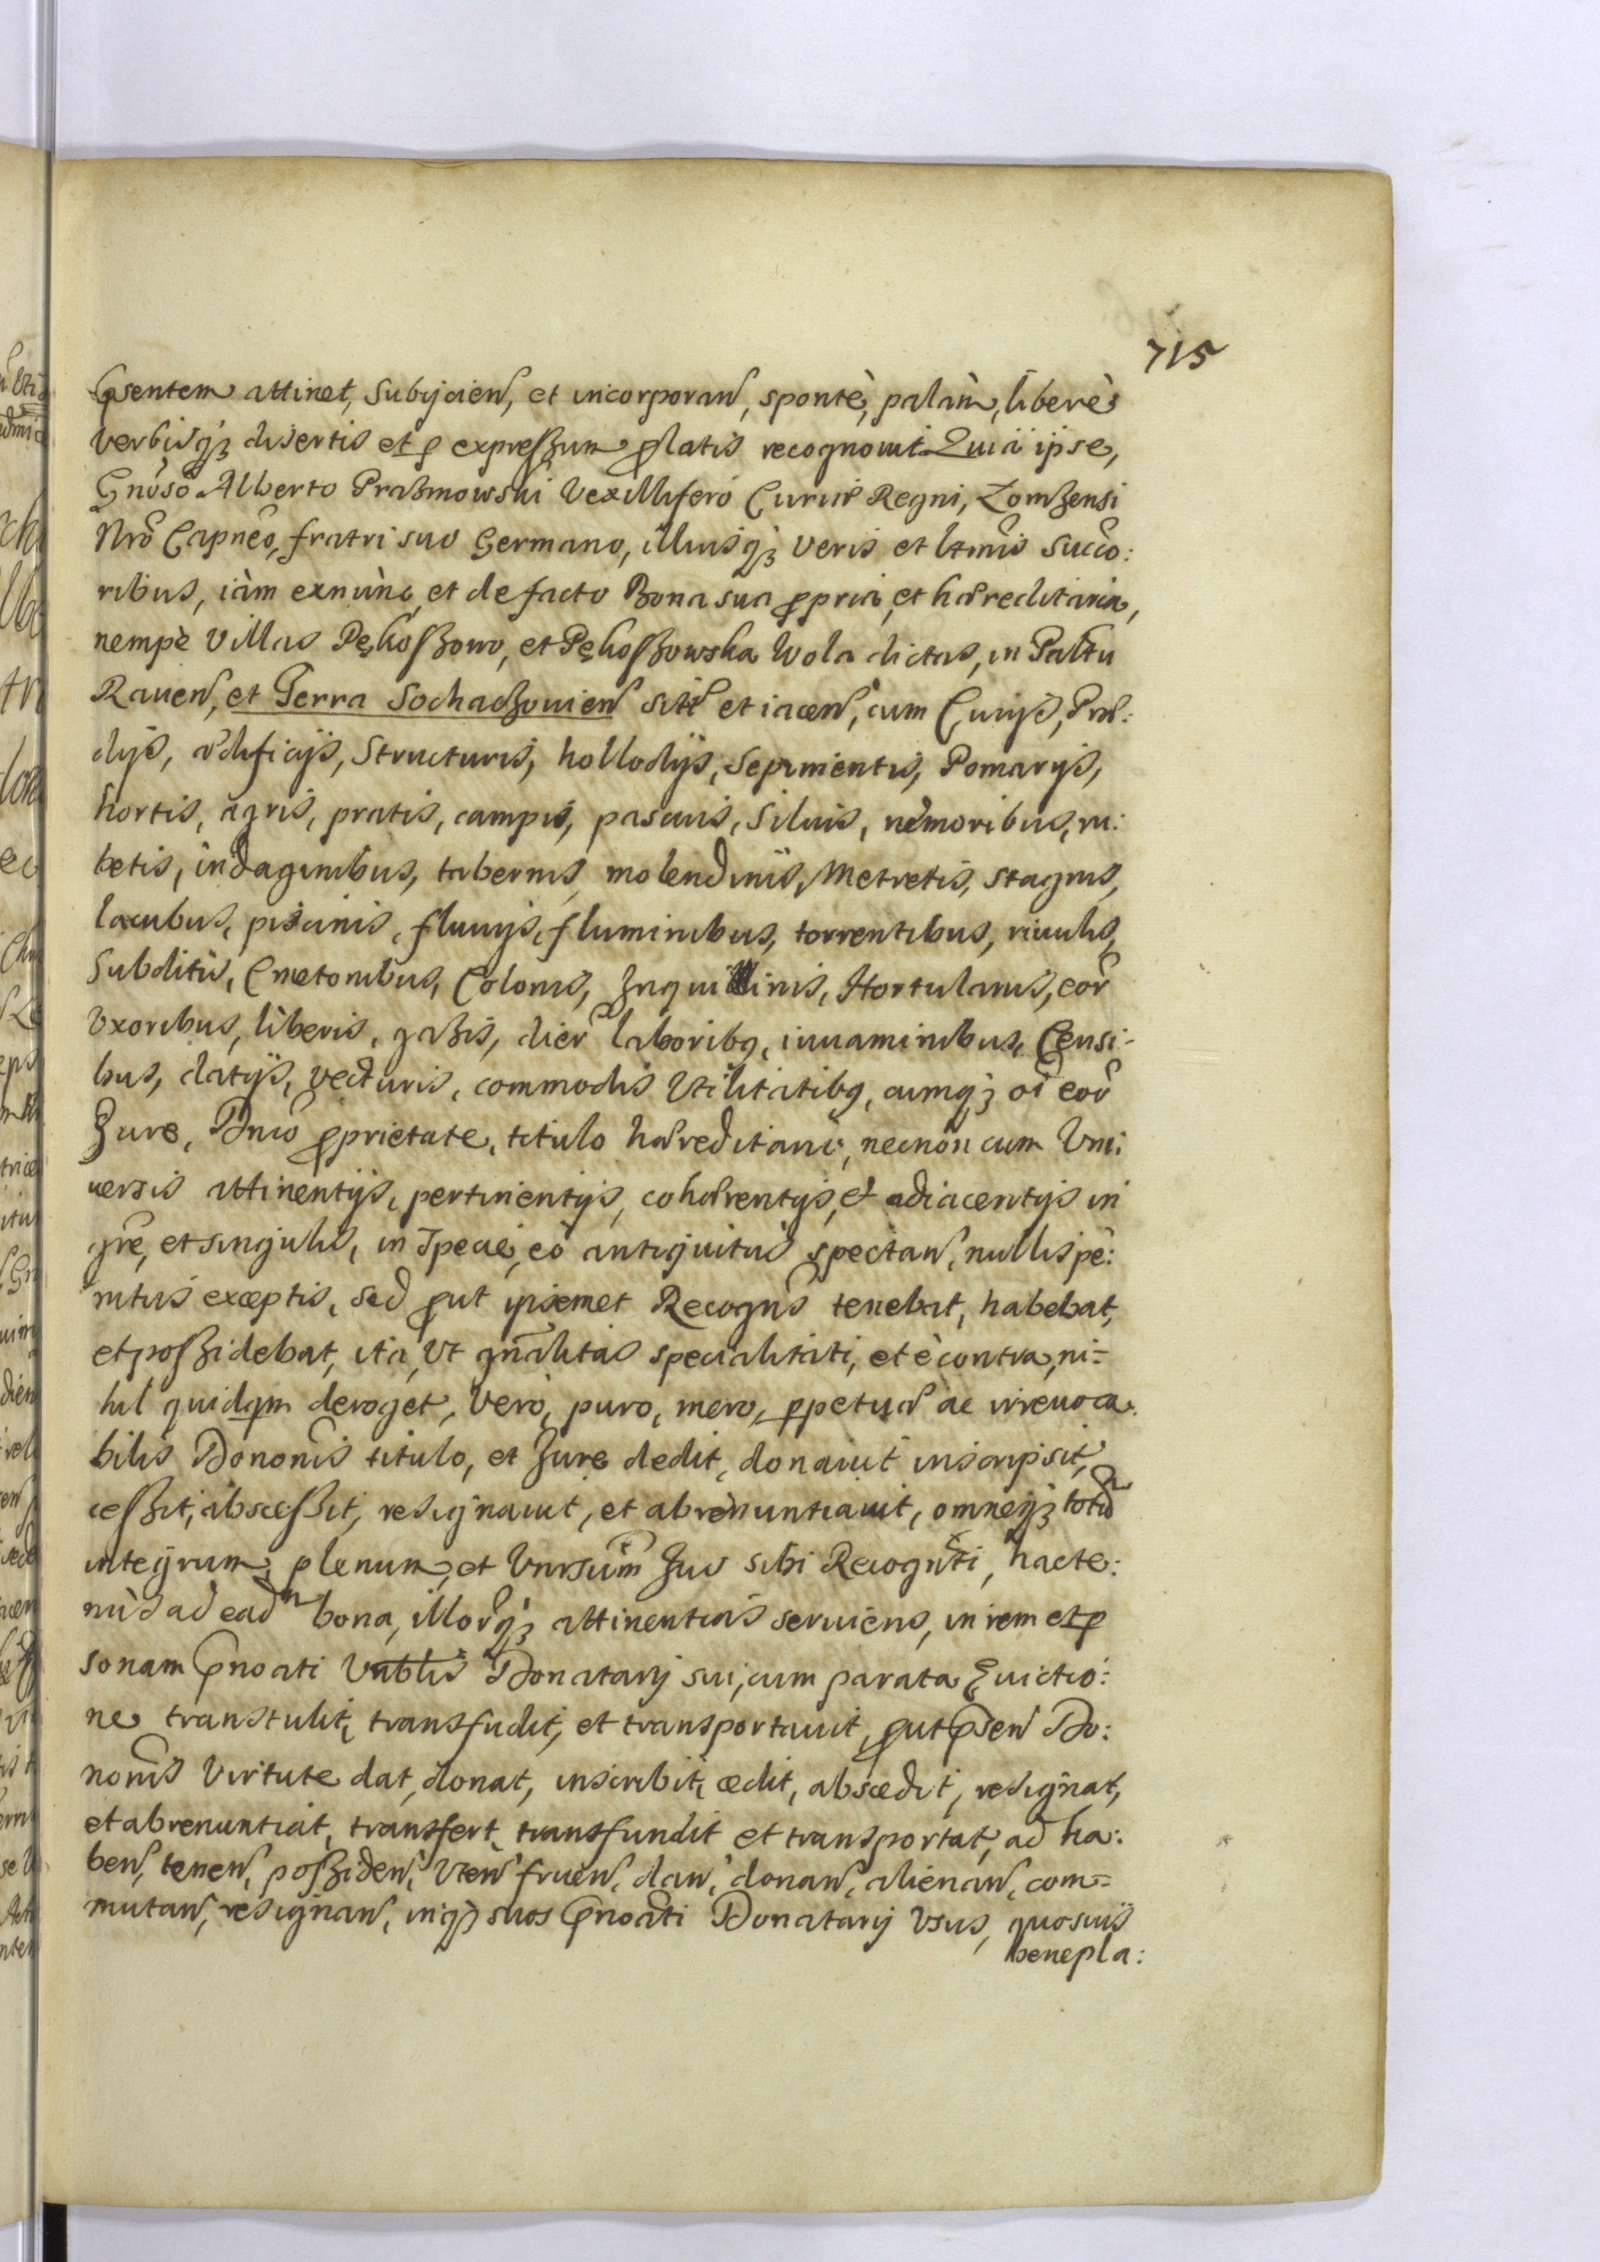 715
psentem attinet, subijcien, et incorporan, spontè, palàm, liberè,
verbisq3 disertis et p expreßum platis recognouit Quia ipse,
Gnoso Alberto Praßmowski Vexillifero Curiæ Regni, Lomzensi
Nro Capneo, fratri suo Germano, illiusq3 veris et ltmis Succo:
ribus, iàm exnùnc, et de facto Bona sua ppria, et hæreditaria,
nempè Villas Pękoßowo, et Pękoßowska Wola dictas, in Paltu
Rauen, et Terra Sochaczouien sitæ et iacen, cum Curijs, Præ:
dijs, ædificijs, Structuris, hollodijs, Sepimentis, Pomarijs,
hortis, agris, pratis, campis, pascuis, Siluis, nemoribus, ru:
betis, indaginibus, tabernis, molendinis, Metretis, stagnis,
lacubus, piscinis, fluuijs, fluminibus, torrentibus, riuulis,
Subditis, Cmetonibus, Colonis, Inquilinis, Hortulanis, eor
Vxoribus, liberis, gazis, dier laboribq, iuuaminibus, Censi-
bus, datijs, vecturis, commodis Vtilitatibq, cumq3 oi eor
Iure, Dnio pprietate, titulo hæreditario, necnon cum Vni:
uersis attinentijs, pertinentijs, cohærentijs, et adiacentijs in
gre, et singulis, in Specie, eò antiquitus spectan, nullis pe:
nitus exceptis, sed put ipsemet Recogns tenebat, habebat,
et poßidebat, ita, Vt gnalitas specialitati, et è contra, ni=
hil quidqm deroget, Vero, puro, mero, ppetuæ ac irreuoca:
bilis Dononis titulo, et Iure dedit, donauit inscripsit,
ceßit, absceßit, resignauit, et abrenuntiauit, omneq3 totu
integrum, plenum, et Vnrsum Ius sibi Recognti, hacte:
nùs ad ead bona, illorq3 attinentias seruiens, in rem et p
sonam pnoati Vnblis Donatarij sui, cum parata Euictio:
ne transtulit, transfudit, et transportauit, put psen Do:
nonis Virtute dat, donat, inscribit, cedit, abscedit, resignat,
et abrenuntiat, transfert, transfundit et transportat, ad ha:
ben, tenen, poßiden, Vten fruen, dan, donan, alienan, com=
mutan, resignan, inq3 suos pnoati Donatarij Vsus, quosuis
benepla: